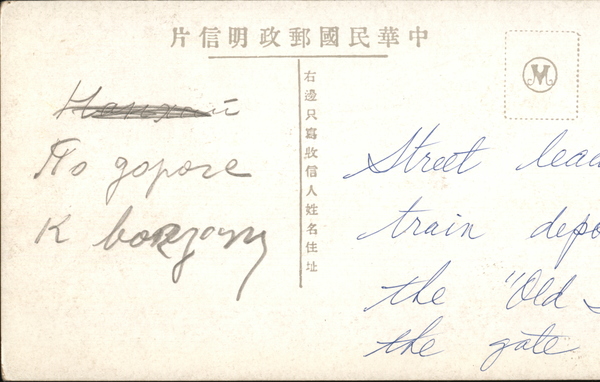 中華民國郵政明信片
右邊只寫收信人姓名住址
По дороге
к вокзалу
Street lead
train depo
the "Old
the gate